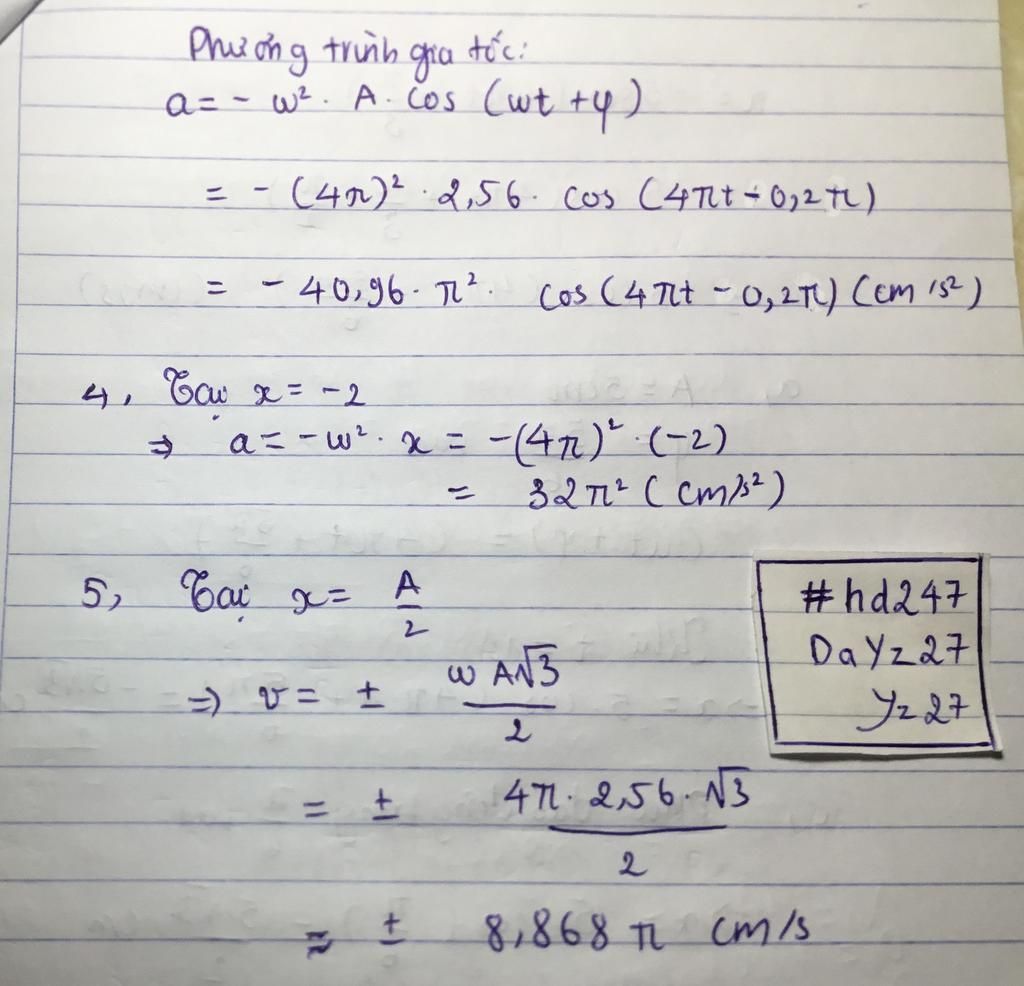 Phương trình gia tốc:
a = - ω² · A · cos (ωt + φ)
= - (4π)² · 2,56 · cos (4πt - 0,2π)
= - 40,96 · π² · cos (4πt - 0,2π) (cm/s²)
4, Tại x = -2
⇒ a = -ω² · x = -(4π)² · (-2)
= 32π² (cm/s²)
5, Tại x = A/2
⇒ v = ± ωA√3/2
= ± 4π · 2,56 · √3/2
≈ ± 8,868 π cm/s
#hd247
DaYz27
Yz27